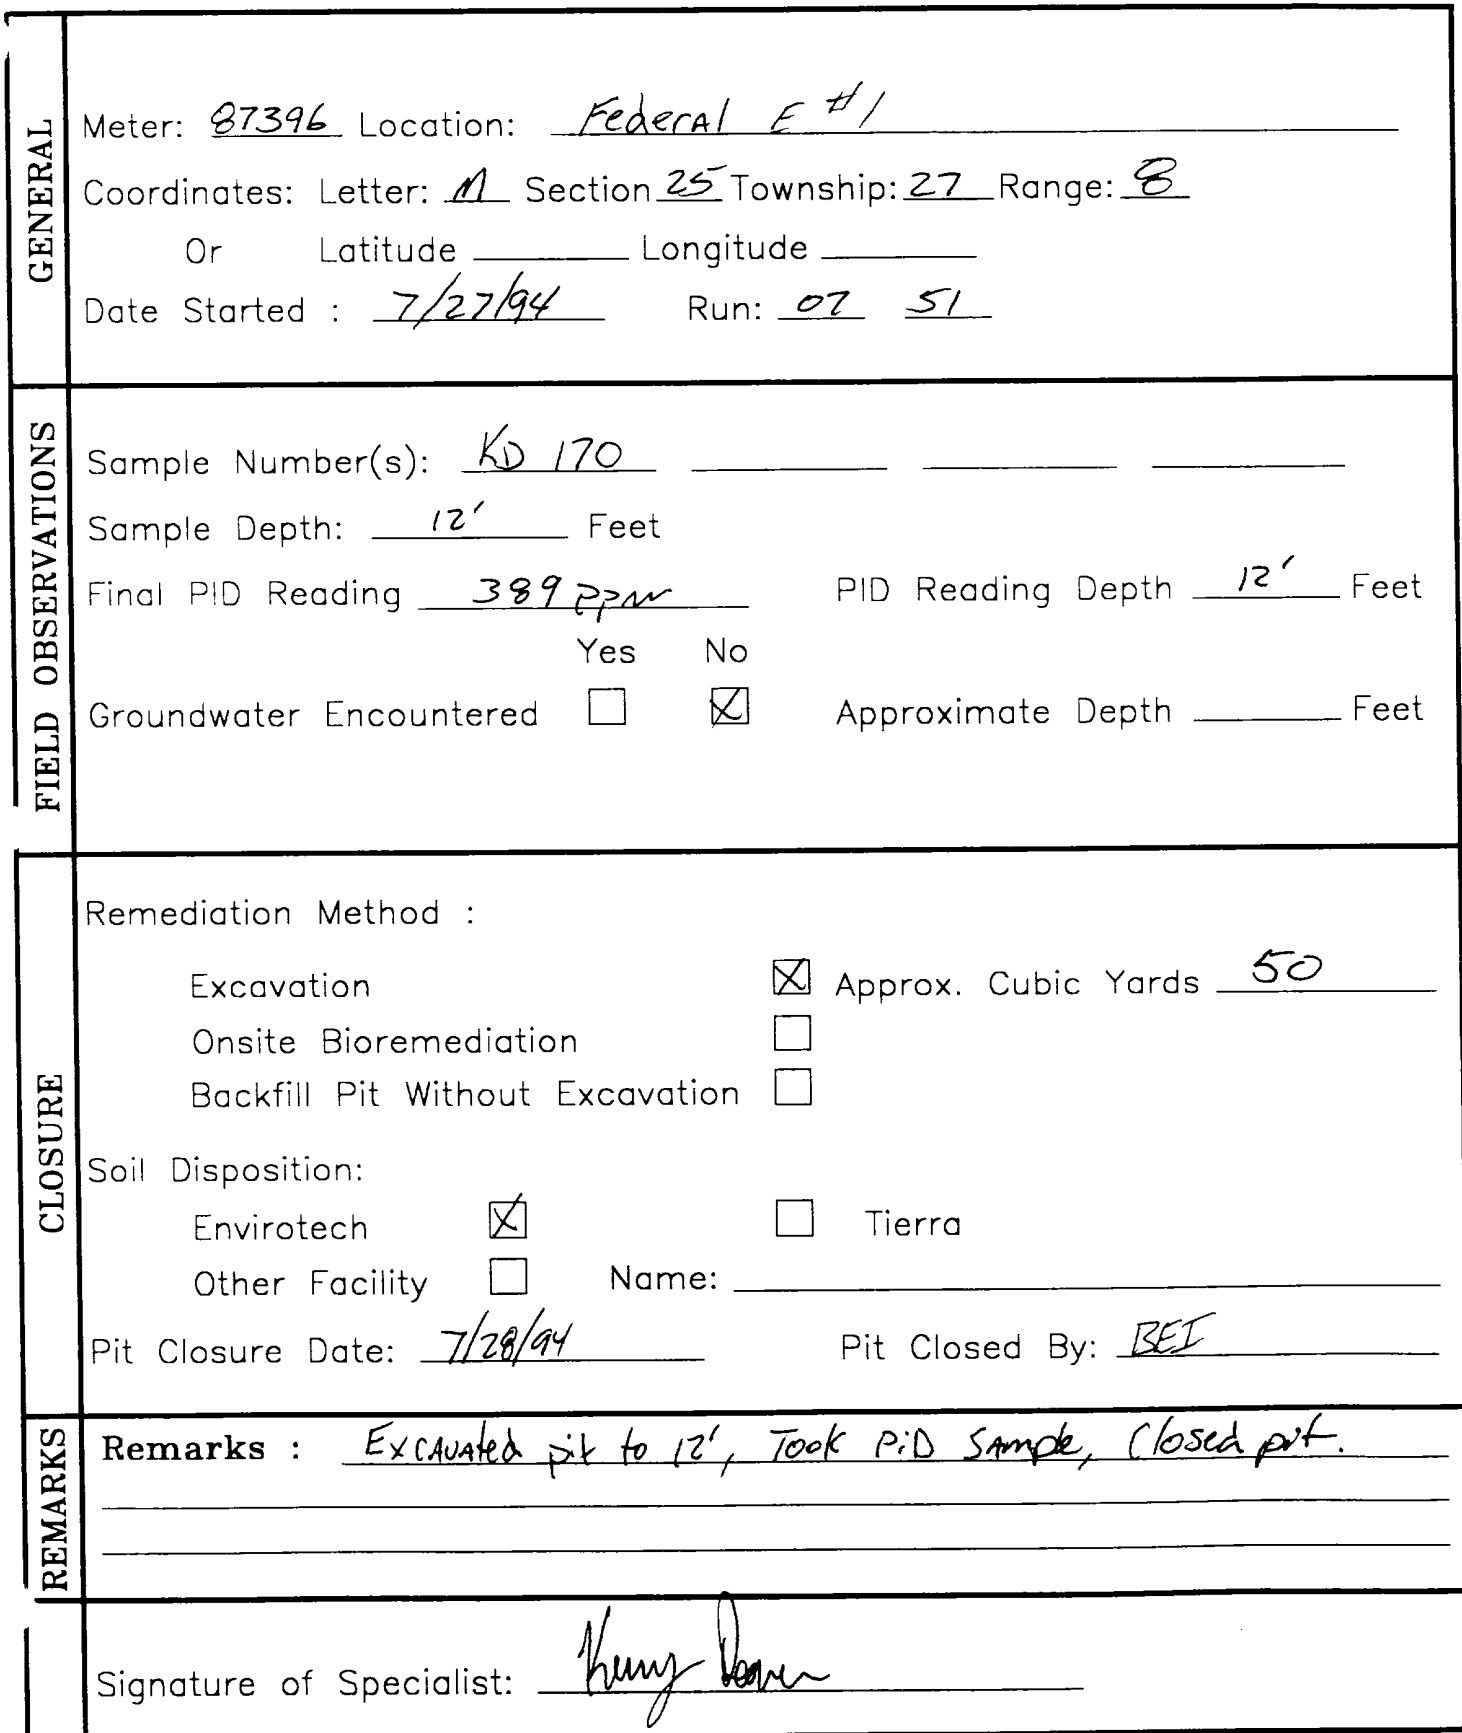 GENERAL
Meter: 87396 Location: Federal E #1
Coordinates: Letter: M Section 25 Township: 27 Range: 8
Or Latitude Longitude
Date Started : 7/27/94 Run: 07 51
FIELD OBSERVATIONS
Sample Number(s): KD 170
Sample Depth: 12' Feet
Final PID Reading 389 ppm PID Reading Depth 12' Feet
Yes No
Groundwater Encountered Approximate Depth Feet
CLOSURE
Remediation Method :
Excavation Approx. Cubic Yards 50
Onsite Bioremediation
Backfill Pit Without Excavation
Soil Disposition:
Envirotech Tierra
Other Facility Name:
Pit Closure Date: 7/28/94 Pit Closed By: BEI
REMARKS
Remarks : Excavated pit to 12', Took PiD Sample, Closed pit.
Signature of Specialist: Kerry